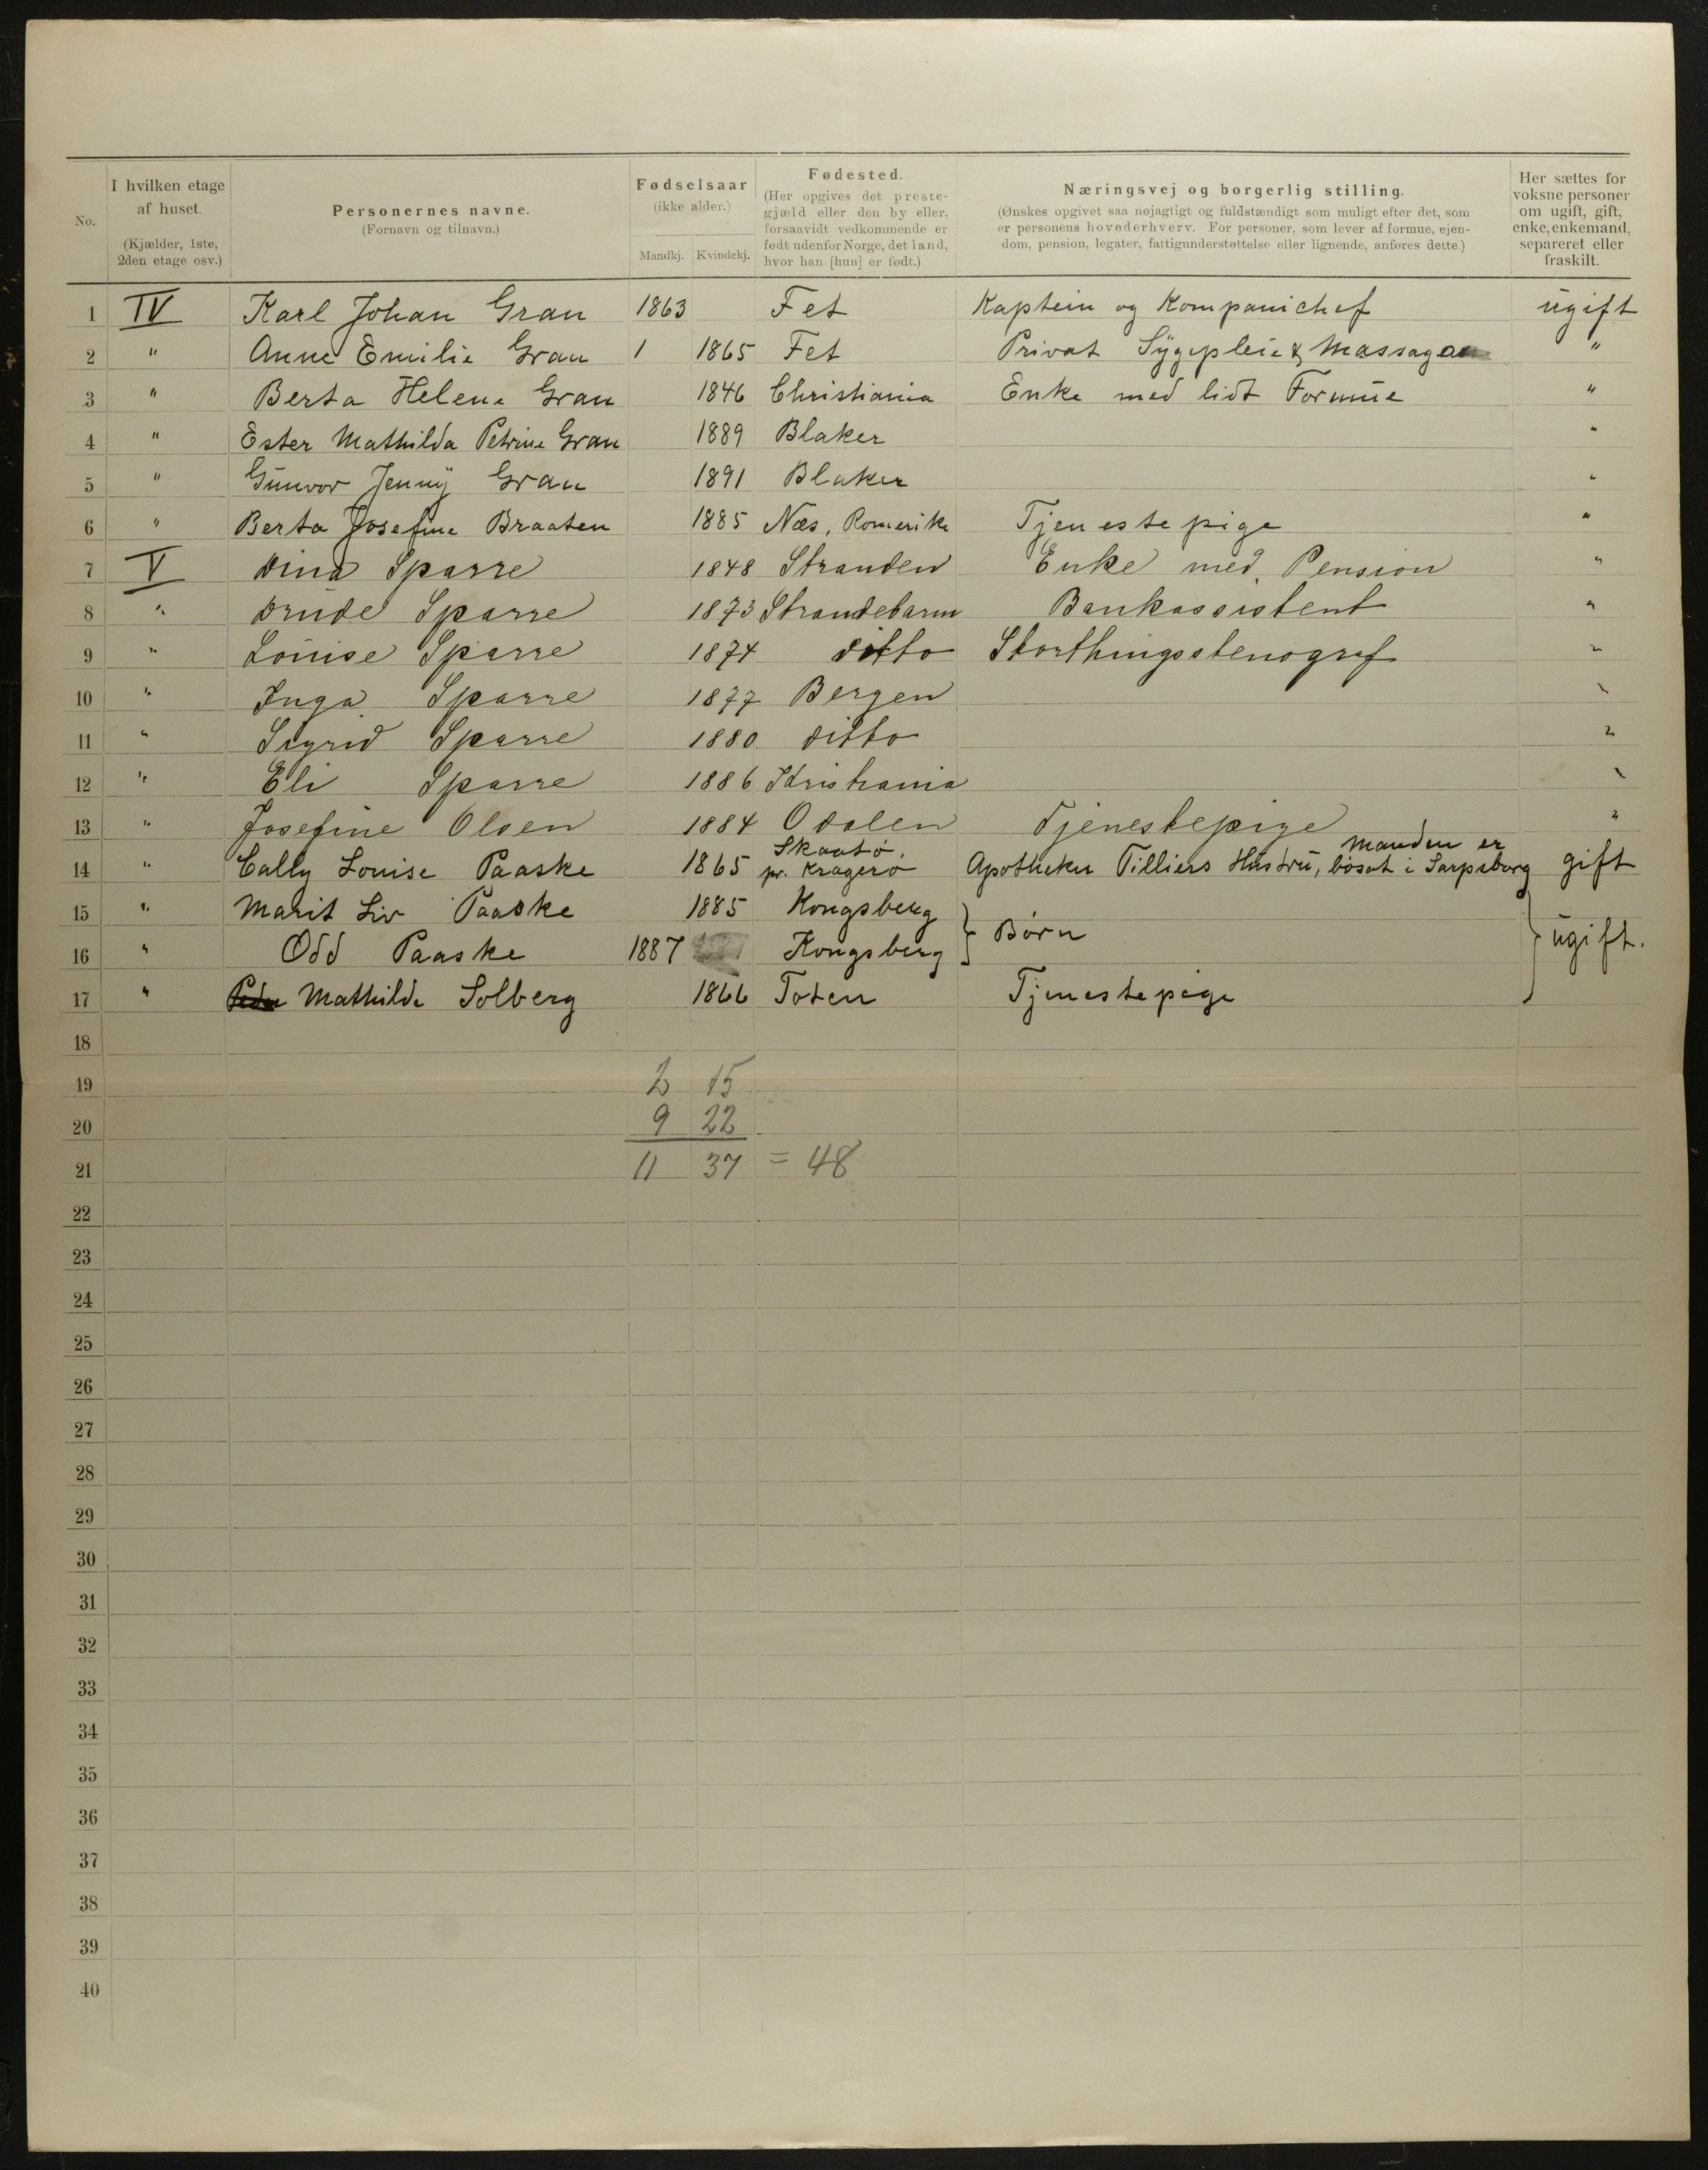 No.
I hvilken etage af huset. (Kjælder, 1ste, 2den etage osv.)
Personernes navne. (Fornavn og tilnavn.)
Fødselsaar (ikke alder.)
Mandkj. Kvindekj.
Fødested. (Her opgives det prestegjæld eller den by eller, forsaavidt vedkommende er født udenfor Norge, det land, hvor han [hun] er født.)
Næringsvej og borgerlig stilling. (Ønskes opgivet saa nøjagtigt og fuldstændigt som muligt efter det, som er personens hovederhverv. For personer, som lever af formue, ejendom, pension, legater, fattigunderstøttelse eller lignende, anføres dette.)
Her sættes for voksne personer om ugift, gift, enke, enkemand, separeret eller fraskilt.
1 IV Karl Johan Gran 1863 Fet Kaptein og Kompanichef ugift
2 " Anne Emilie Gran 1 1865 Fet Privat Sygepleie & Massage "
3 " Berta Helene Gran 1846 Christiania Enke med lidt Formue "
4 " Ester Mathilda Petrine Gran 1889 Blaker "
5 " Gunvor Jenny Gran 1891 Blaker "
6 " Berta Josefine Braaten 1885 Næs, Romerike Tjenestepige "
7 V Dina Sparre 1848 Stranden Enke med Pension "
8 " Drude Sparre 1873 Strandebarm Bankassistent "
9 " Louise Sparre 1874 ditto Storthingsstenograf "
10 " Inga Sparre 1877 Bergen "
11 " Sigrid Sparre 1880 ditto "
12 " Eli Sparre 1886 Kristiania "
13 " Josefine Olsen 1884 Odalen Tjenestepige "
14 " Cally Louise Paaske 1865 Skaatø, pr. Kragerø Apotheker Tilliers Hustru, manden er bosat i Sarpsborg gift
15 " Marit Liv Paaske 1885 Kongsberg } Børn } ugift.
16 " Odd Paaske 1887 Kongsberg
17 " Mathilde Solberg 1866 Toten Tjenestepige
18
19 2 15
20 9 22
21 11 37 = 48
22
23
24
25
26
27
28
29
30
31
32
33
34
35
36
37
38
39
40